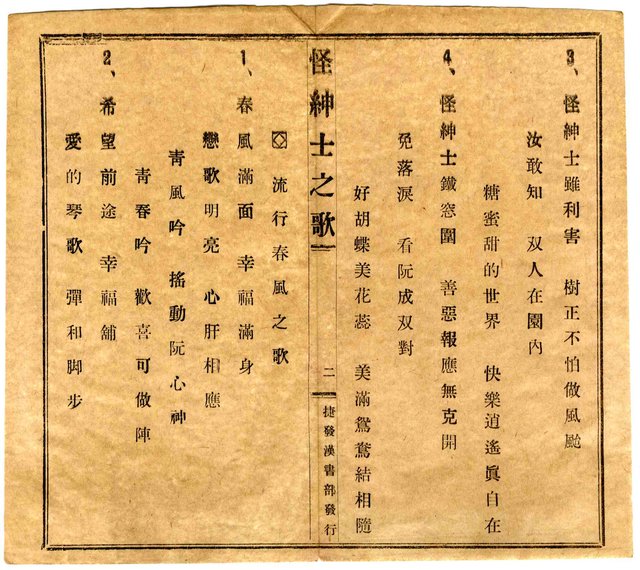 3、怪紳士雖利害　樹正不怕做風颱
汝敢知　双人在園內
糖蜜甜的世界　快樂逍遙眞自在
4、怪紳士鐵窓圍　善惡報應無克開
免落淚　看阮成双對
好胡蝶美花蕊　美滿鴛鴦結相隨
怪紳士之歌
二
捷發漢書部發行
流行春風之歌
1、春風滿面　幸福滿身
戀歌明亮　心肝相應
靑風吟　搖動阮心神
靑春吟　歡喜可做陣
2、希望前途　幸福舖
愛的琴歌　彈和脚步